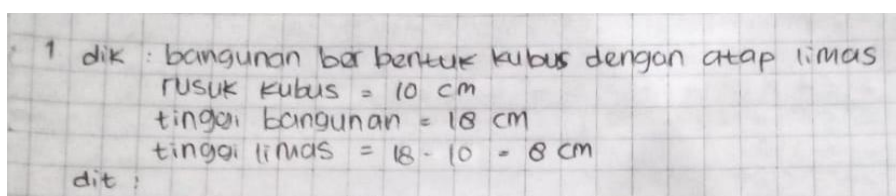 1 dik : bangunan berbentuk kubus dengan atap limas
rusuk kubus = 10 cm
tinggi bangunan = 18 cm
tinggi limas = 18 - 10 = 8 cm
dit :